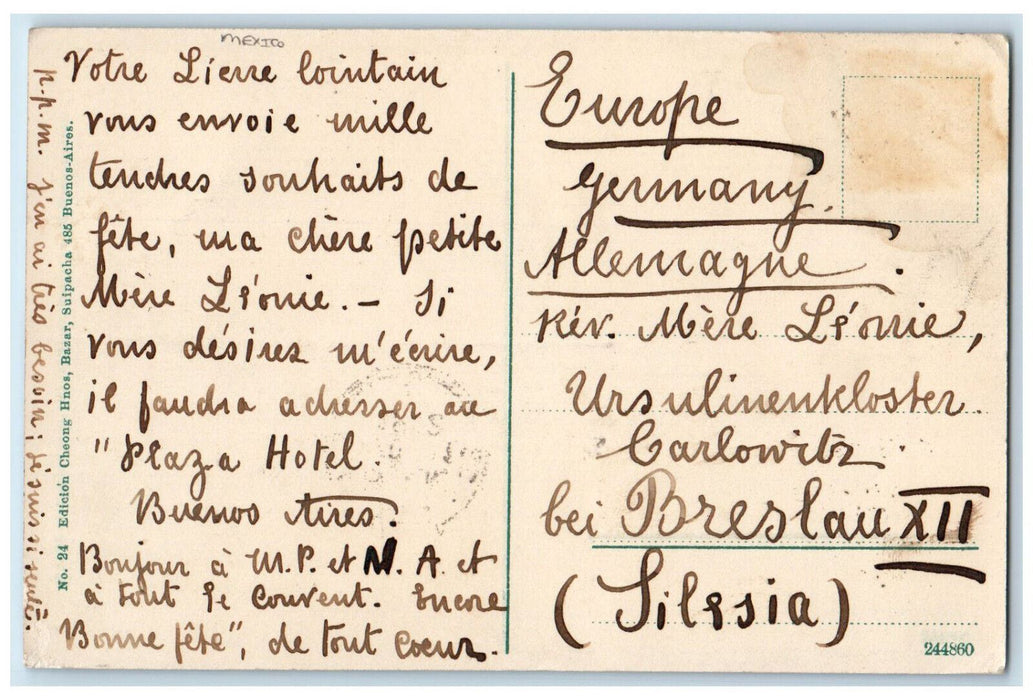 MEXICO
Votre Lierre lointain
vous envoie mille
tendres souhaits de
fête, ma chère petite
Mère Léonie. – Si
vous désirez m'écrire,
il faudra adresser au
"Plaza Hotel.
Buenos Aires.
Bonjour à M.P. et M. A. et
à tout le couvent. Encore
"Bonne fête", de tout coeur.
p.p.m. j'en ai très besoin; je suis si seule.
No. 24 Edición Cheong Hnos, Bazar, Suipacha 485 Buenos-Aires.
Europe
Germany.
Allemagne.
Rév. Mère Léonie,
Ursulinenkloster.
Carlowitz.
bei Breslau XII
(Silesia)
244860